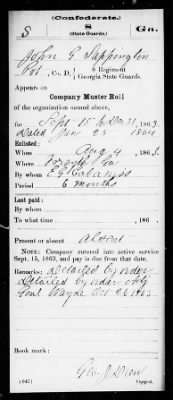 (Confederate.)
S 8 Ga.
(State Guards.)
John G Sappington
Pvt, Co. D, 8 Regiment
Georgia State Guards.
Appears on
Company Muster Roll
of the organization named above,
for Sept 15 to Dec 31, 1863.
Dated Jan 25 1864
Enlisted:
When Aug 4, 1863.
Where Ga
By whom E G Cabaniss
Period 6 months
Last paid:
By whom
To what time , 186 .
Present or absent Absent
NOTE: Company entered into active service
Sept. 15, 1863, and pay is due from that date.
Remarks: Detailed by order
Detailed by order of
Genl Wayne Oct 26 1863.
Book mark:
(642) Copyist.